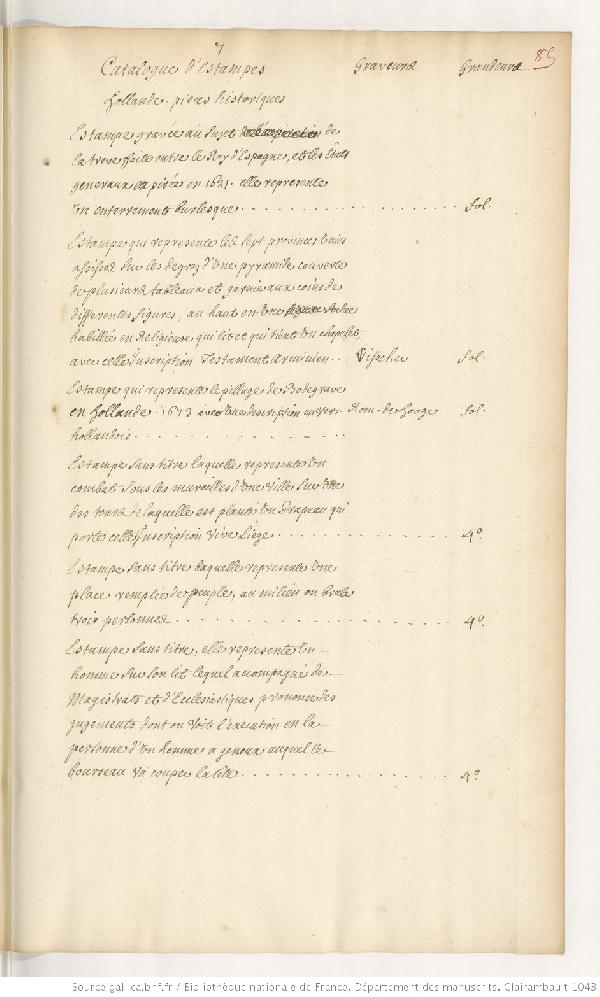 7
85
Catalogue d'Estampes Graveurs Grandeurs
Hollande. pieces historiques
Estampe gravée au sujet de
la treve faite entre le Roy d'Espagne, et les Etats
generaux expirée en 1621. elle represente
un enterrement burlesque fol.
Estampe qui represente les sept provinces unies
assises sur les degrez d'une pyramide couverte
de plusieurs tableaux et garnie aux coins de
differentes figures, au haut est une
habillée en Religieuse qui lit et qui tient un chapelet,
avec cette Inscription Testament Arminien.. Visscher fol.
Estampe qui represente le pillage de Bodegrave
en Hollande. 1673 avec une description en vers Rom. de Hooge fol.
hollandois
Estampe sans titre laquelle represente un
combat sous les murailles d'une ville sur une
des tours de laquelle est planté un Drapeau qui
porte cette Inscription Vive Liege 4º.
Estampe sans titre laquelle represente une
place remplie de peuple, au milieu on brule
trois personnes 4º.
Estampe sans titre, elle represente un
homme sur son lit lequel acompagné de
Magistrats et d'Eclesiastiques prononce des
jugements dont on voit l'execution en la
personne d'un homme a genoux auquel le
bourreau va couper la tête 4º
Source gallica.bnf.fr / Bibliothèque nationale de France. Département des manuscrits. Clairambault 1043